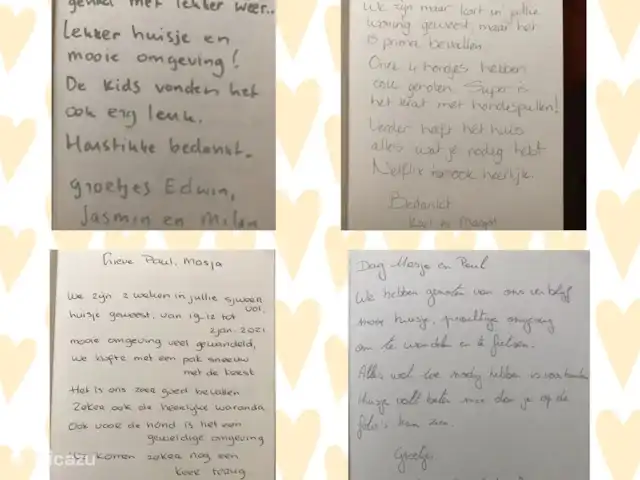 genoten met lekker weer..
Lekker huisje en
mooie omgeving!
De kids vonden het
ook erg leuk.
Hartstikke bedankt.
groetjes Edwin,
Jasmin en Milan
We zijn maar kort in jullie
woning geweest maar het
is prima bevallen
Onze 4 hondjes hebben
ook genoten. Super is
het krat met hondespullen!
Verder heeft het huis
alles wat je nodig hebt
Netflix is ook heerlijk.
Bedankt
Lieve Paul, Mosja
We zijn 2 weken in jullie sfeer
vol
huisje geweest, van 19-12 tot
2 jan-2021
mooie omgeving veel gewandeld,
we boften met een pak sneeuw
met de kerst
Het is ons zeer goed bevallen
Zeker ook de heerlijke waranda
Ook voor de hond is het een
geweldige omgeving
We komen zeker nog een
keer terug
Dag Mosje en Paul
We hebben genoten van ons verblijf
mooi huisje, prachtige omgeving
om te wandelen en te fietsen.
Alles wat we nodig hebben is voorhanden
Huisje valt beter mee dan je op de
foto's kan zien.
Groetjes
icazu